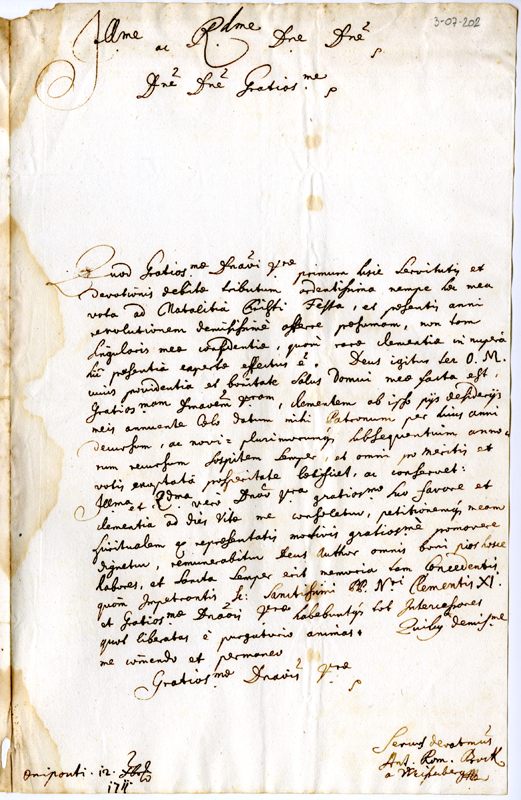 3-07-202
Illme ac Rdme Dne Dne
Dne Dne Gratiosme
Quod Gratiosme Dnaõi Vrae primum hisce Servitutis et
devotionis debitae tributum ardentissima nempe haec mea
vota ad Natalitia Christi Festa et praesentis anni
revolutionem demississimè offerre praesumam, non tam
singularis mea confidentia, quam rara clementia in nuperâ
praesentia experta effectus ẽ. Deus igitur ter O. M.
cuius providentia et bonitate Salus Domui mea facta est,
Gratiosmam Dnaõem Vram, clementem ab ipso pijs desiderijs
meis annuente Coelo datum mihi Patronum per huius anni
decursum, ac novi plurimorumq subsequentium anno-
rum recursum sospitem semper, et omni pro meritis et
votis exoptatâ prosperitate laetificet, ac conservet:
Illma et Rdma verò Dnaõ Vra gratiosmo suo favore et
clementia ad dies vitae me consoletur, petitionemq meam
spiritualem ex repraesentatis motivis gratiosmè promovere
dignetur, remunerabitur Deus Author omnis boni pios hosce
labores, et Sancta semper erit memoria tam Concedentis
quàm Impetrantis Sanctissimi Nri Clementis XI.
et Gratiosme Dnaõis Vrae habebuntq tot Intercessores
quot liberatas è purgatorio animas. Quibus demisme
me cõmendo et permaneo
Gratiosme Dnaõis Vrae
Servus devotmus
Ant. Rom.
à Weissenberg
Oniponti. 12.
1711